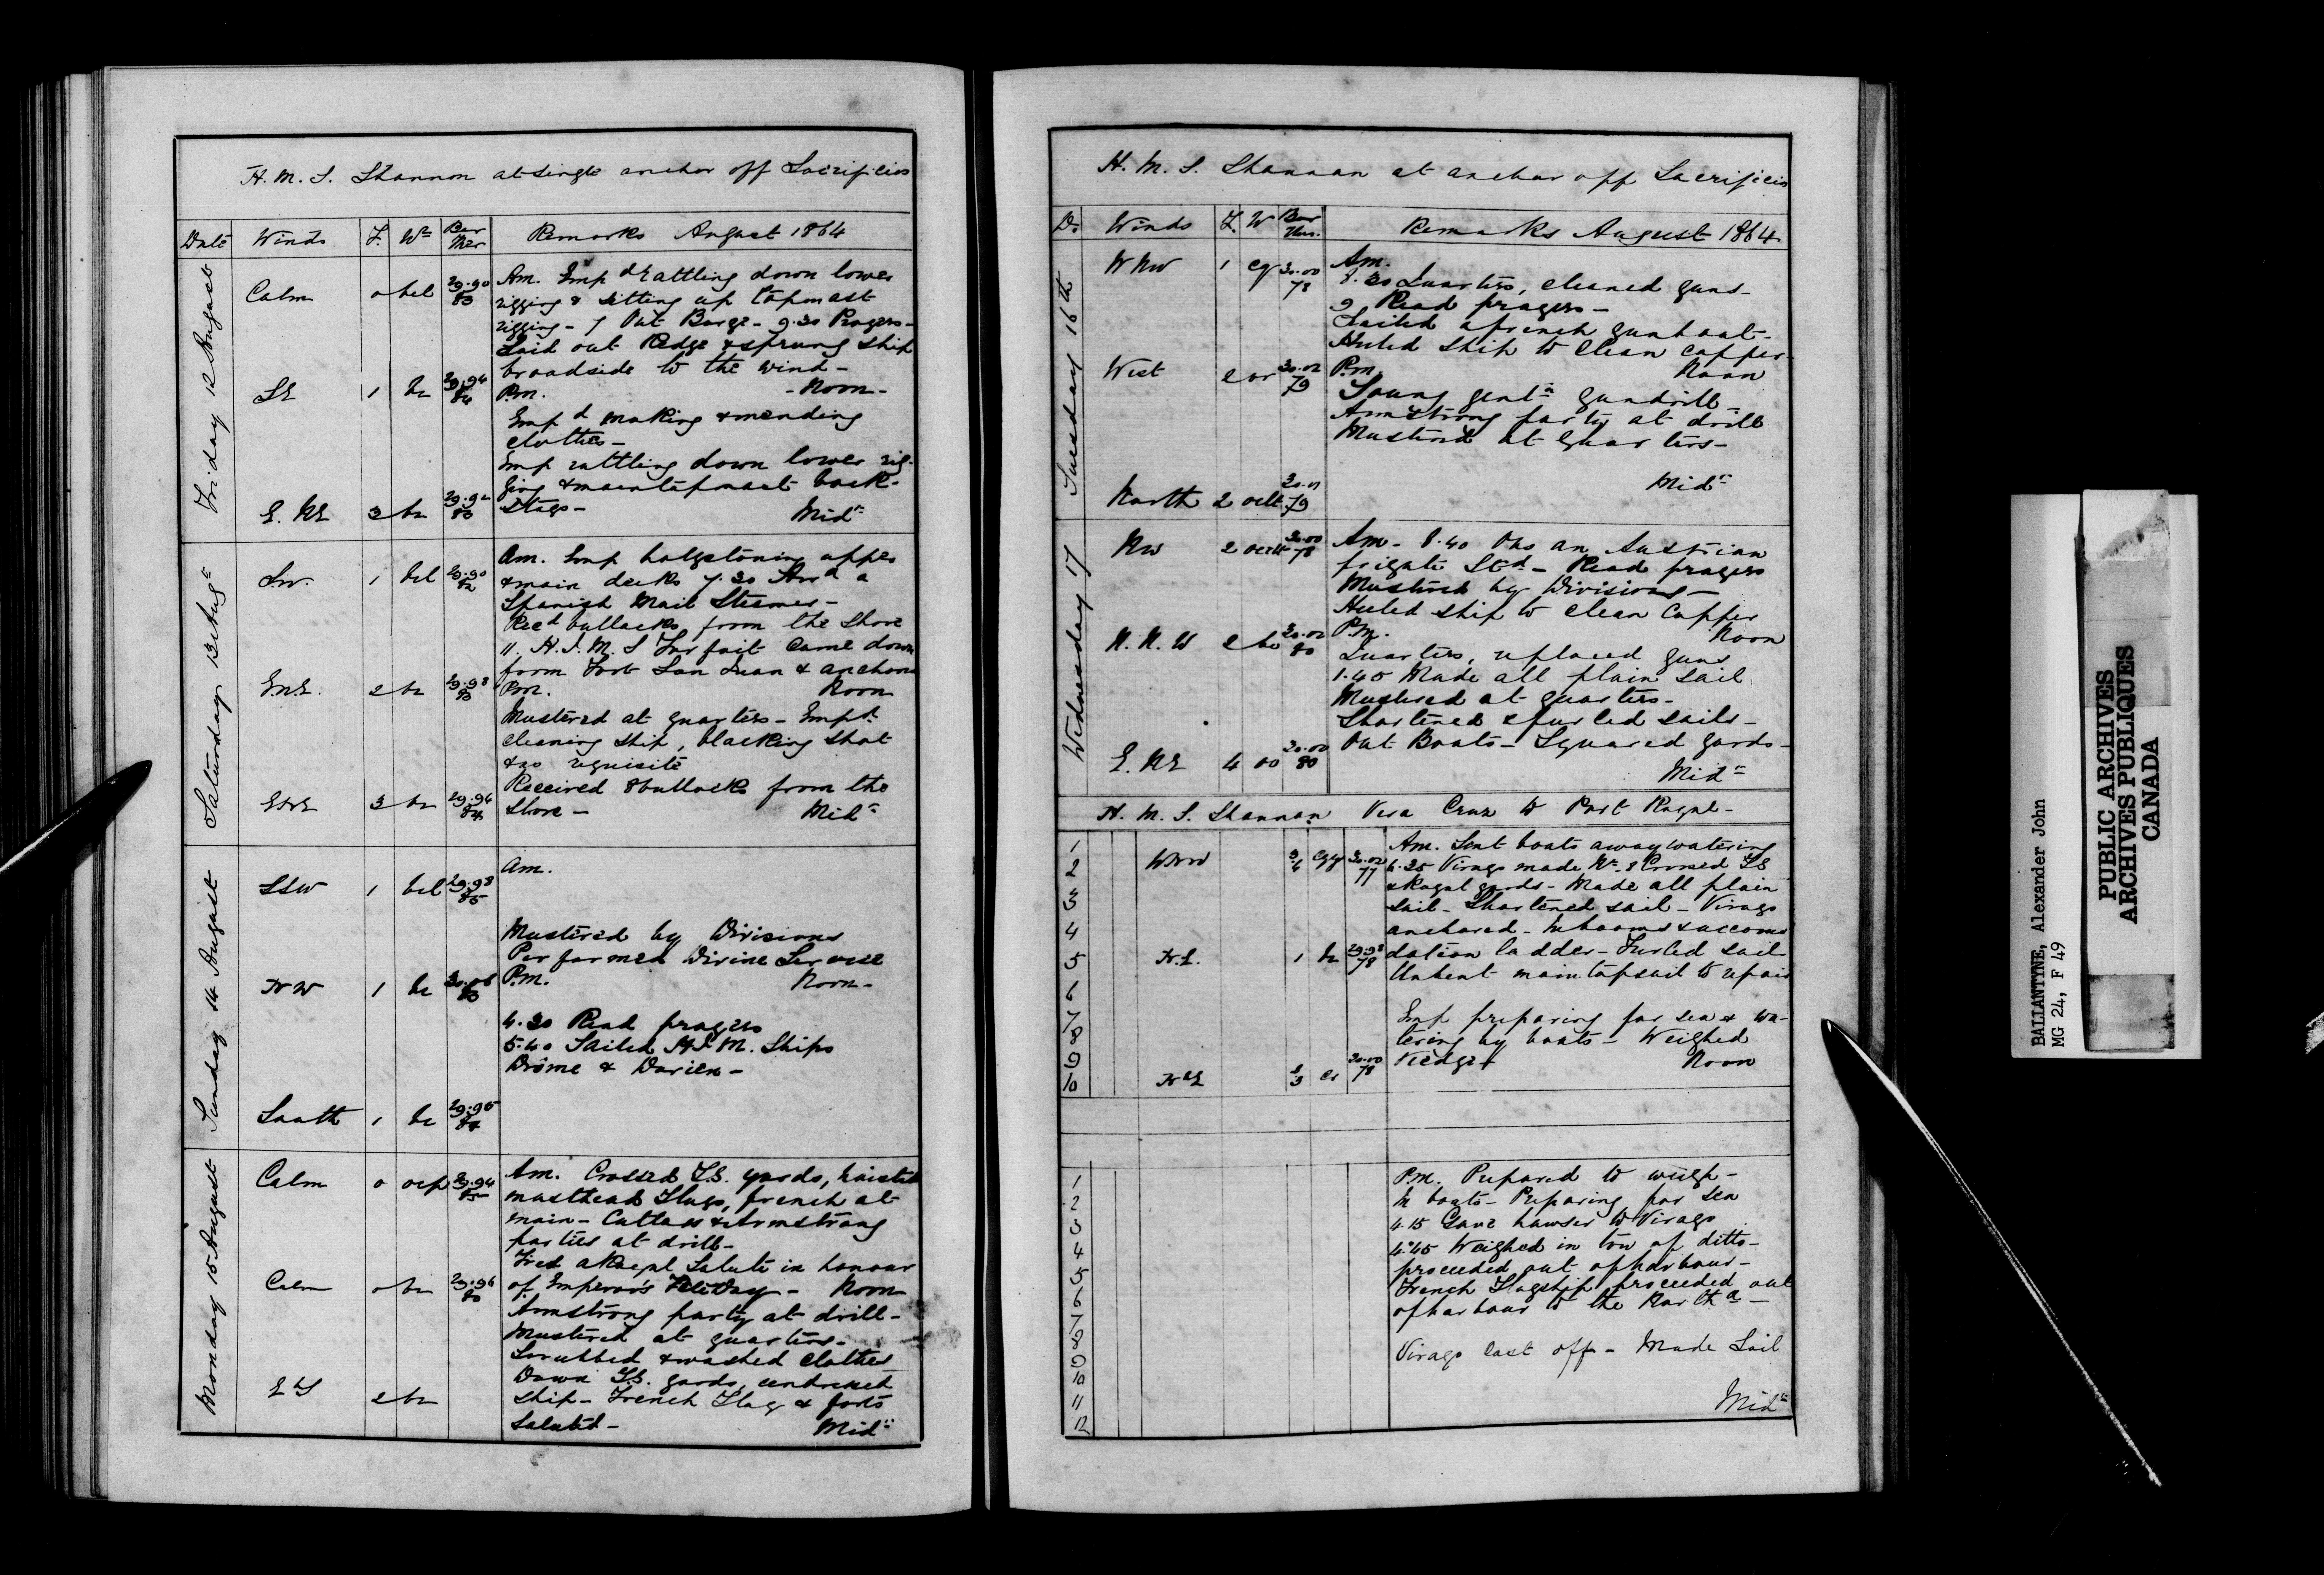 H. M. S. Shannon at single anchor off Sacrificios
Date Winds F. Wr Bar Ther Remarks August 1864
Friday 12 August
Calm 0 bcl 29.90 83
SE 1 bc 29.94 84
E. NE 3 bc 29.92 83
Am. Empd rattling down lower
rigging & sitting up topmast
rigging - 7 Out Barge - 9.30 Prayers -
Laid out Kedge & sprung ship
broadside to the wind -
P.m. - Noon -
Empd making & mending
clothes -
Emp rattling down lower rig-
ging & maintopmast back-
stays - Midt
Saturday 13 Augt
SW. 1 bcl 29.90 82
ENE. 2 bc 29.98 83
EbNE 3 bc 29.94 84
Am. Emp holystoning upper
& main decks 7.30 Arrd a
Spanish Mail Steamer -
Recd bullocks from the shore
11. H. I. M. S Forfait came down
from Fort San Juan & anchored
P.m. Noon
Mustered at quarters - Empd
cleaning ship, blacking shot
& as requisite
Received 8 bullocks from the
shore - Midt
Sunday 14 August
SSW 1 bcl 29.98 85
NW 1 bc 30.06 83
South 1 bc 29.95 84
Am.
Mustered by Divisions
Performed Divine Service
P.m. Noon -
4.30 Read prayers
5.40 Sailed H I M. Ships
Drôme & Darien -
Monday 15 August
Calm 0 ocp 29.94 85
Calm 0 bc 29.94 80
2 bc
Am. Crossed T.G. yards, hoisted
masthead Flags, french at
main - Cutlass & Armstrong
parties at drill -
Fired a Royal Salute in honour
of Emperor's Fete Day - Noon
Armstrong party at drill -
Mustered at quarters -
Scrubbed & washed clothes
Down T.G. yards, undressed
ship - French Flag & forts
saluted - Midt
H. M. S. Shannon at anchor off Sacrificios
De Winds F. W Bar Ther. Remarks August 1864
Tuesday 16th
WNW 1 cg 30.00 78
West 2 or 30.02 79
North 2 oclt 79
Am.
8.30 Quarters, cleaned guns -
9 Read prayers -
Sailed a french gunboat -
Heeled ship to clean copper -
P.m. Noon
Young gentn gundrill -
Armstrong party at drill
Mustered at quarters -
Midt
Wednesday 17
NW 2 30.00 78
N. N. W 2 bo 30.02 80
E. NE 4 oo 30.00 80
Am - 8.40 Obs an Austrian
frigate Std - Read prayers
Mustered by Divisions -
Heeled ship to clean copper
P.m. Noon
Quarters, replaced guns
1.45 Made all plain sail
Mustered at quarters -
Shortened & furled sails -
Out Boats - Squared yards -
Midt
H. M. S. Shannon Vera Cruz to Port Royal -
1
2 WNW 3 4 cgg 30.02 77
3
4
5 N. E. 1 bc 29.98 78
6
7
8
9
10 NE 2 3 co 30.00 78
Am. Sent boats away watering
4.25 Virago made No. 8 Crossed TG
& Royal yards - Made all plain
sail - Shortened sail - Virago
anchored - In booms & accomo
dation ladder - Furled sail
Unbent main topsail to repair
Emp preparing for sea & wa-
tering by boats - Weighed
Kedge + Noon
1
2
3
4
5
6
7
8
9
10
11
12
P.m. Prepared to weigh -
In boats - Preparing for sea
4.15 Gave hawser to Virago
4.45 Weighed in tow of ditto -
proceeded out of harbour -
French Flagship proceeded out
of harbour to the Northd -
Virago cast off - Made Sail
Midt
BALLANTINE, Alexander John
MG 24, F 49
PUBLIC ARCHIVES
ARCHIVES PUBLIQUES
CANADA